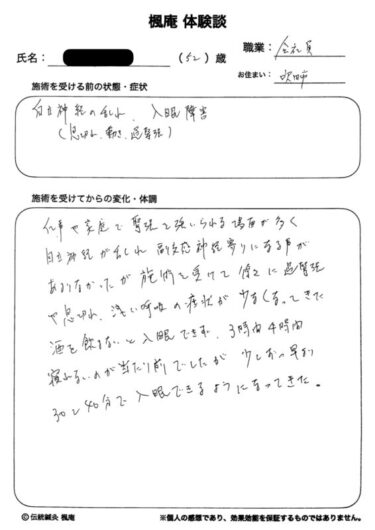 楓庵 体験談
氏名： （52）歳
職業：会社員
お住まい：吹田市
施術を受ける前の状態・症状
自立神経の乱れ、入眠障害
（息切れ、動き、過緊張）
施術を受けてからの変化・体調
仕事や家庭で緊張を強いられる場面が多く
自立神経が乱れ 副交感神経寄りになる事が
あまりなかったが 施術を受けて 徐々に過緊張
や息切れ、浅い呼吸の症状が 少なくなってきた
酒を飲まないと入眠できず、3時間4時間
寝れないのが当たり前でしたが 少しずつ早まり
30〜40分で入眠できるようになってきた。
©伝統鍼灸 楓庵
※個人の感想であり、効果効能を保証するものではありません。